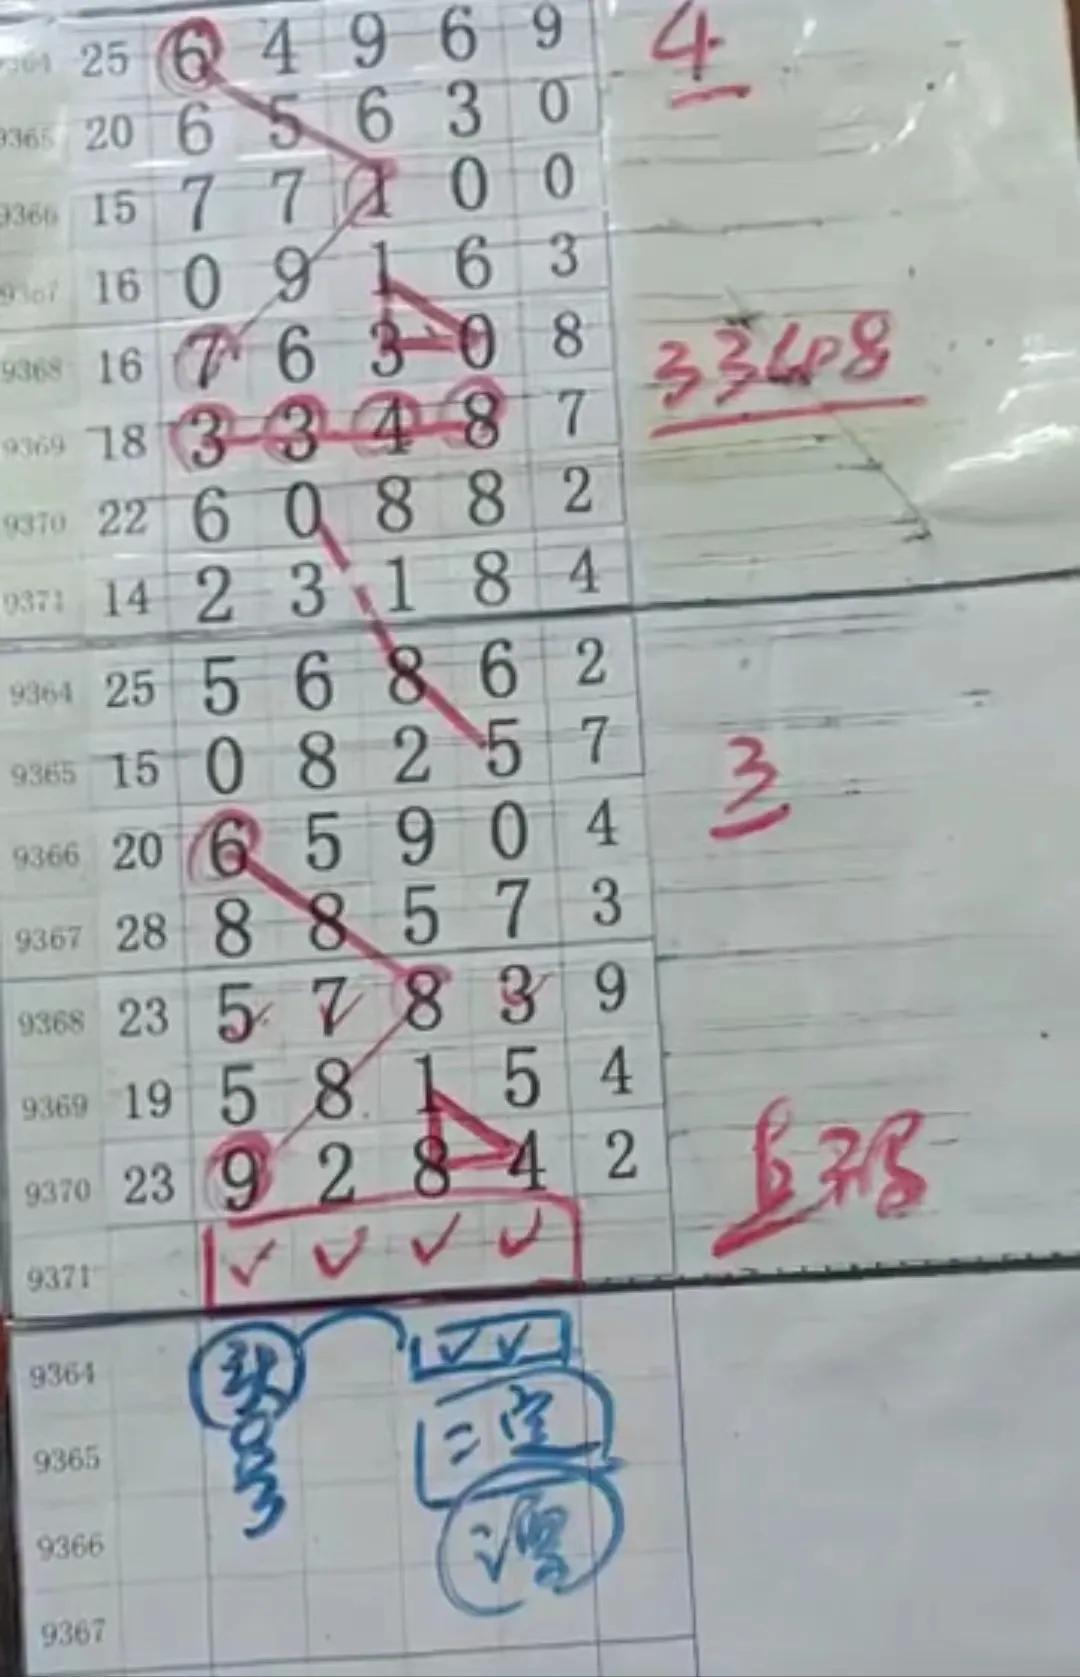 9364 25 6 4 9 6 9 4
9365 20 6 5 6 3 0
9366 15 7 7 1 0 0
9367 16 0 9 1 6 3
9368 16 7 6 3 0 8 3348
9369 18 3 3 4 8 7
9370 22 6 0 8 8 2
9371 14 2 3 1 8 4
9364 25 5 6 8 6 2
9365 15 0 8 2 5 7 3
9366 20 6 5 9 0 4
9367 28 8 8 5 7 3
9368 23 5 7 8 3 9
9369 19 5 8 1 5 4
9370 23 9 2 8 4 2
9371
9364
9365 二定
9366
9367